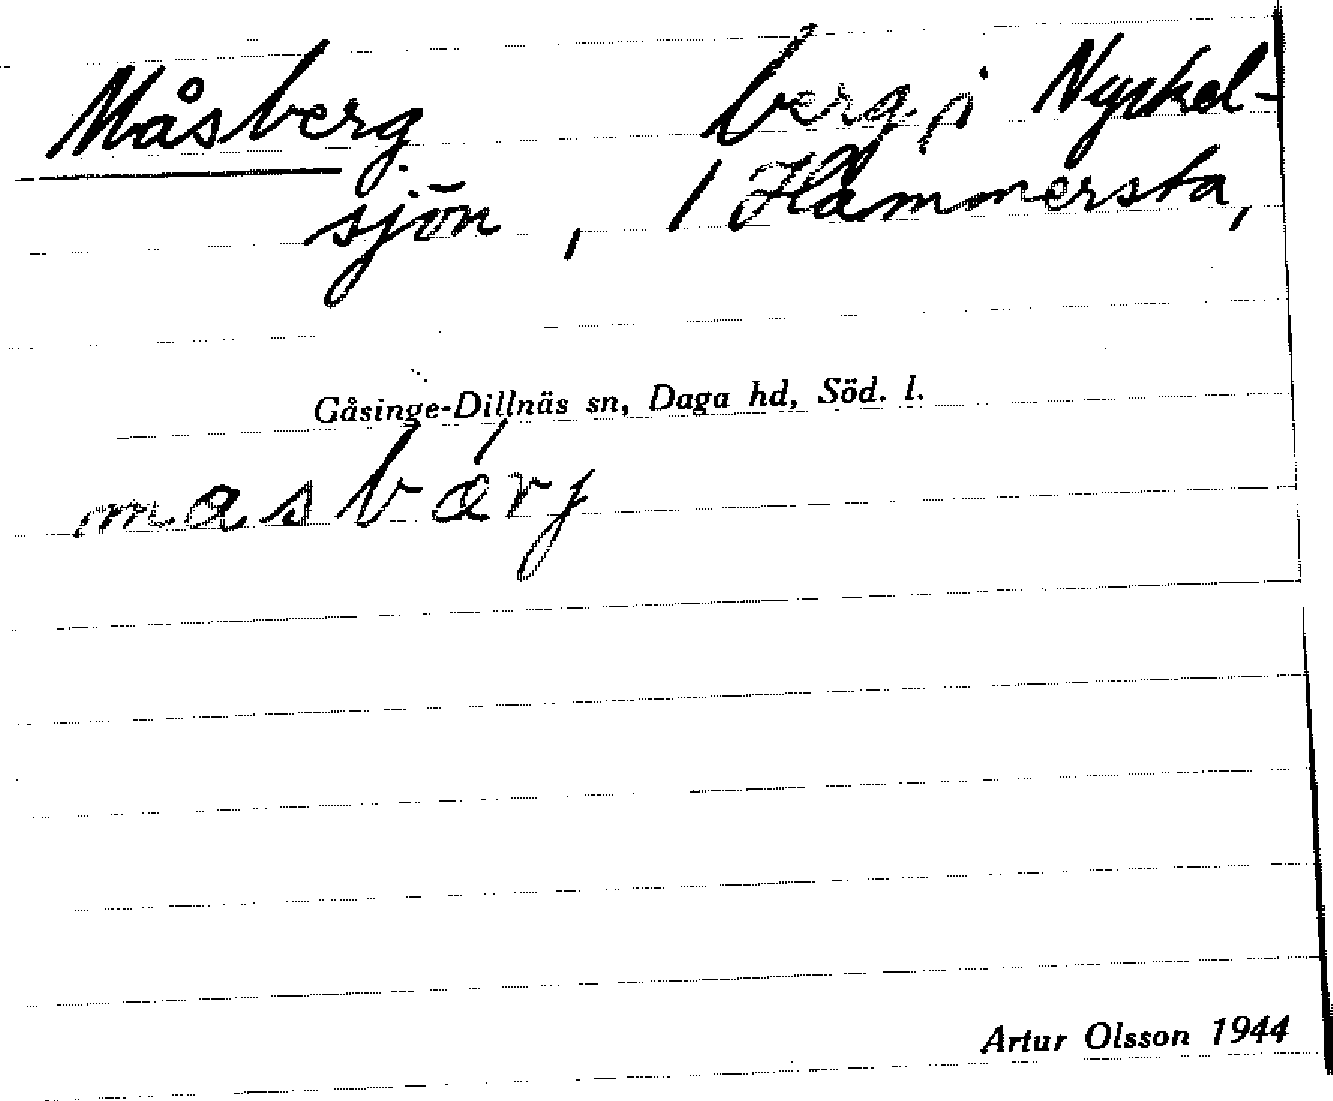 Måsberg berg i Nyckel-
sjön, / Hammersta,
Gåsinge-Dillnäs sn, Daga hd, Söd. l.
masbárj
Artur Olsson 1944